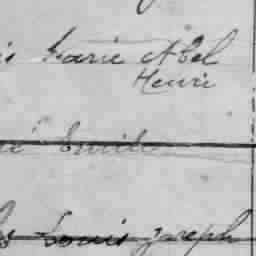 is Marie Abel
Henri
é Emile
s Louis Joseph